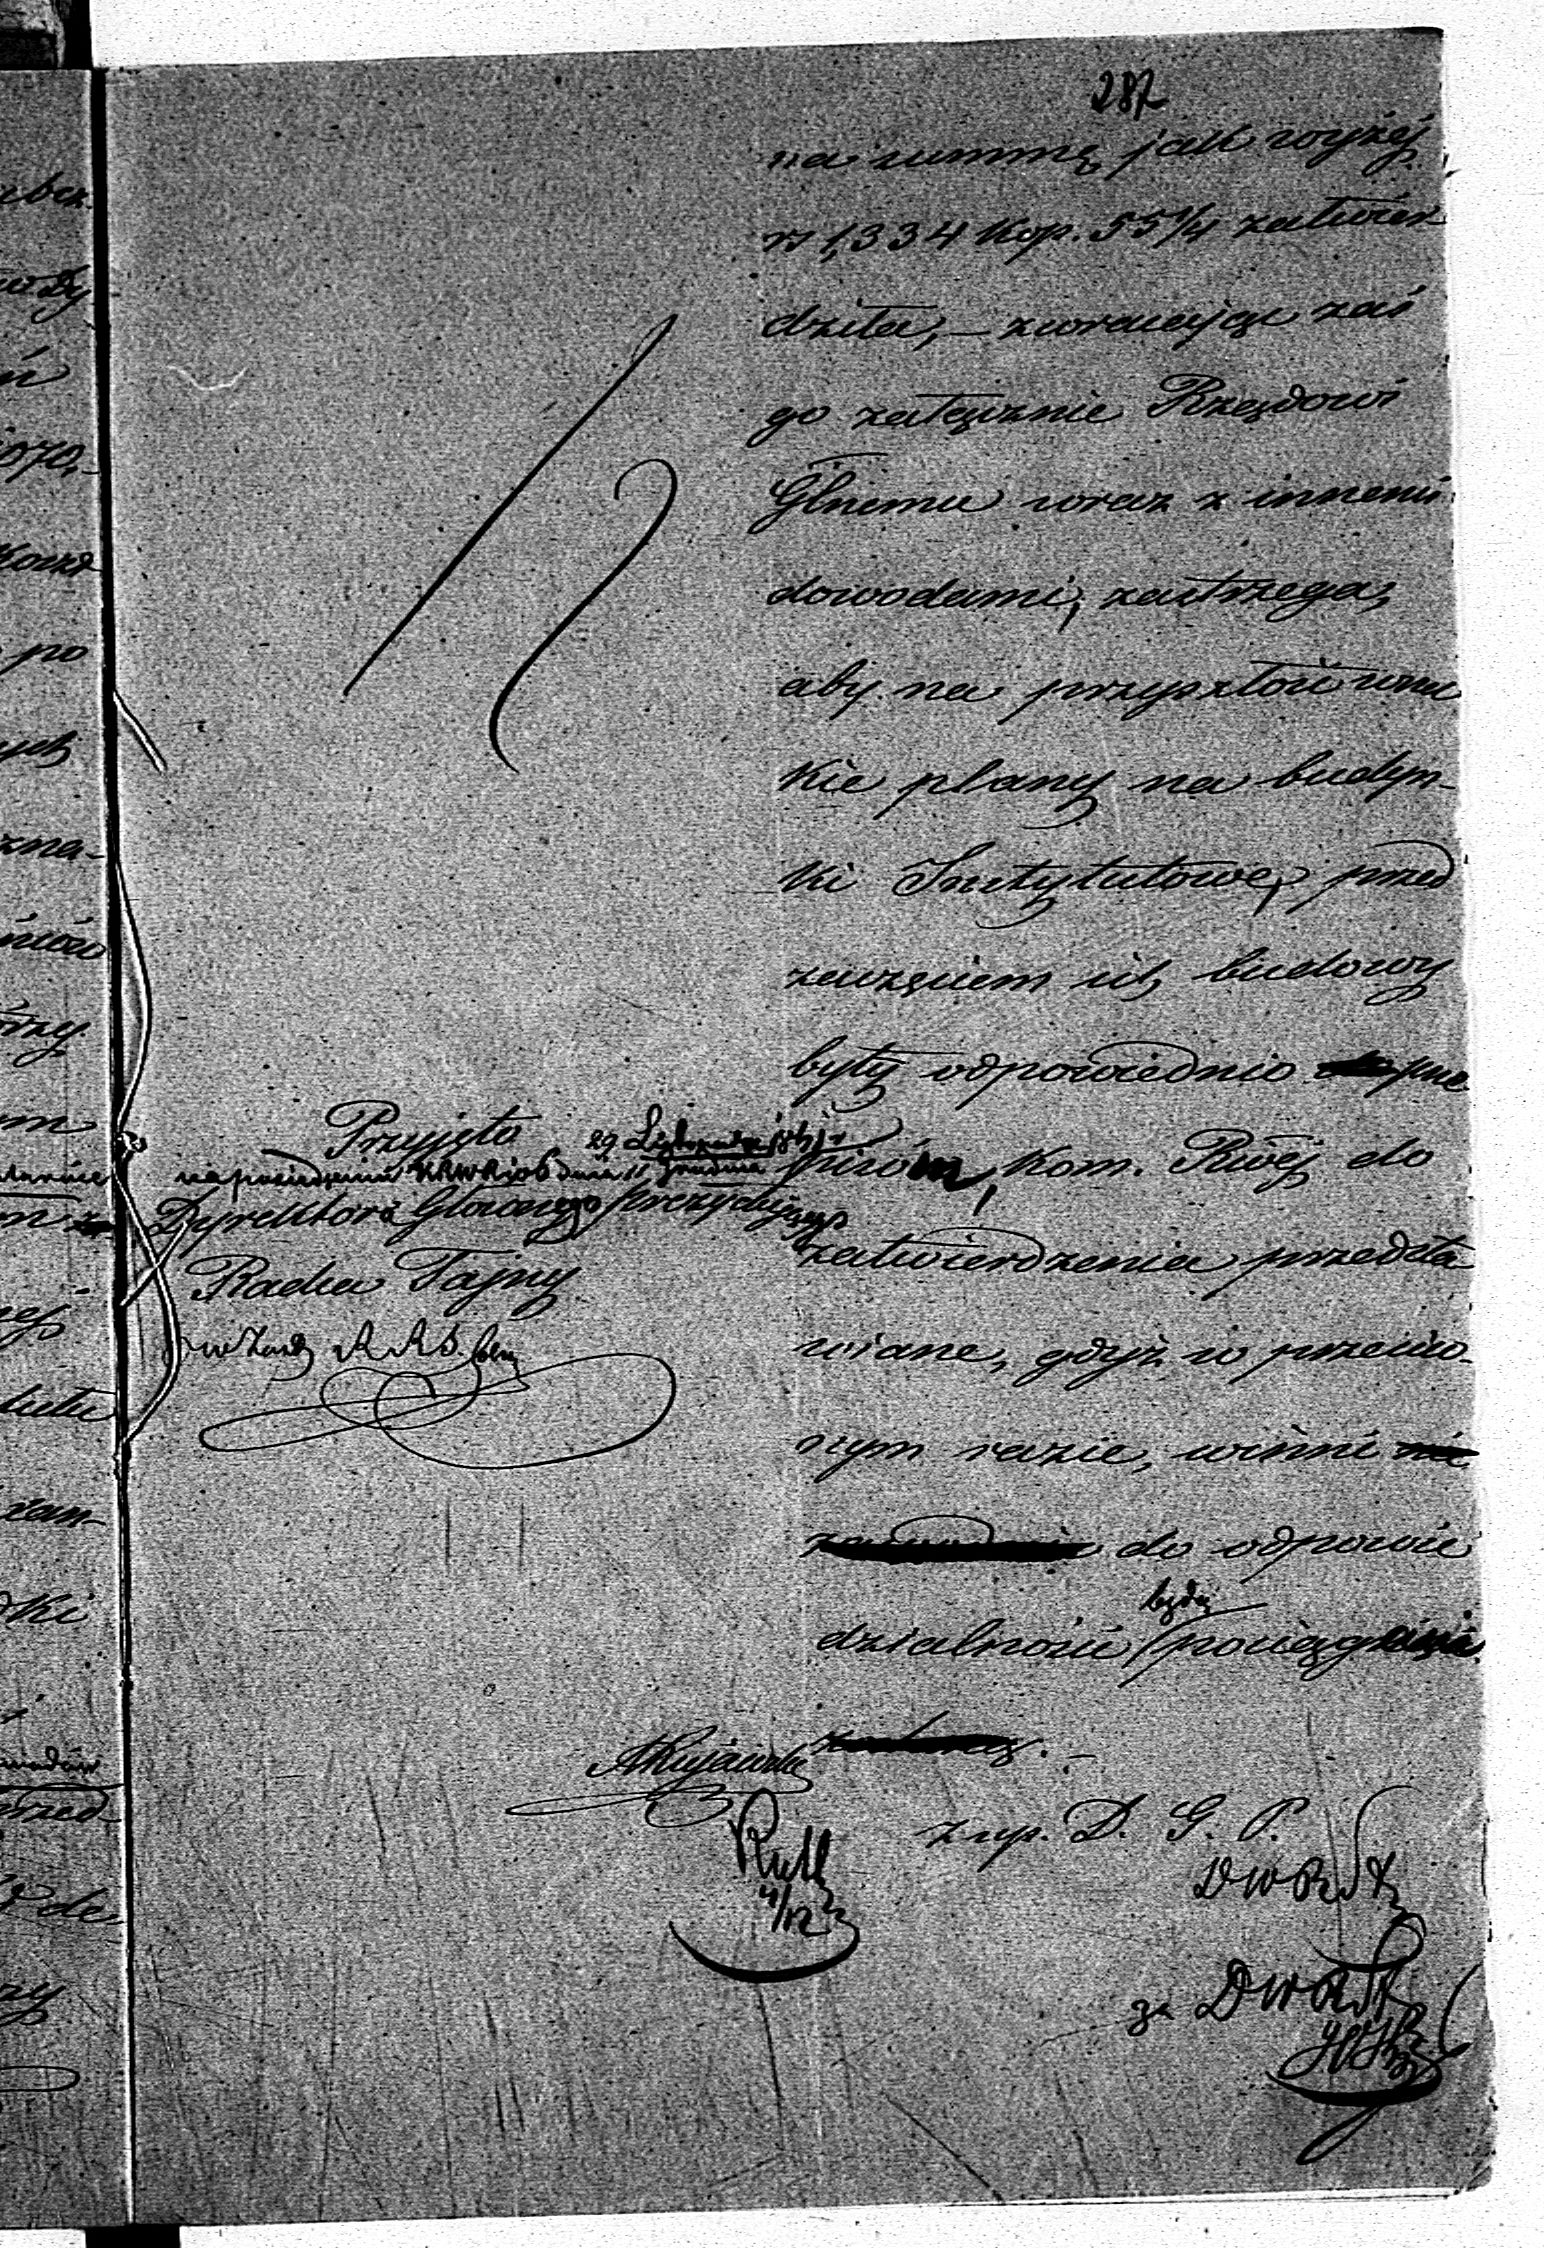 287
na summę jak wyżej
rs 1,334 kop. 55¼ zatwier
dziła, – zwracając zaś
go załącznie Rządowi
Glnemu wraz z innemi
dowodami, zastrzega,
aby na przyszłość wsze
kie plany na budyn-
ki Instytutowe, przed
zaczęciem ich budowy
były odpowiednio
Kom. Rwej do
zatwierdzenia przedsta
wiane, gdyż w przeciw-
nym razie, winni
do odpowie
będą
dzialności pociągnięci
Przyjęto
29 Listopada
na posiedzeniu KRWR dnia 11 Grudnia
Dyrektora Głównego Prezydującego
Radca Tajny
AKujawski
4/12
z up. D. G. P.
DWRSt
za DWRSt